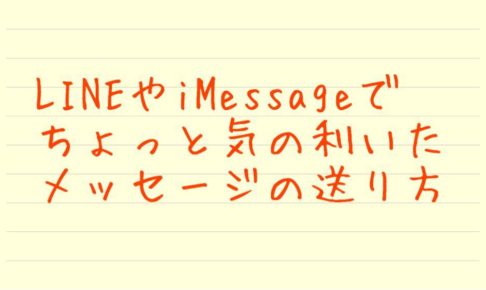 LINEやiMessageで
ちょっと気の利いた
メッセージの送り方